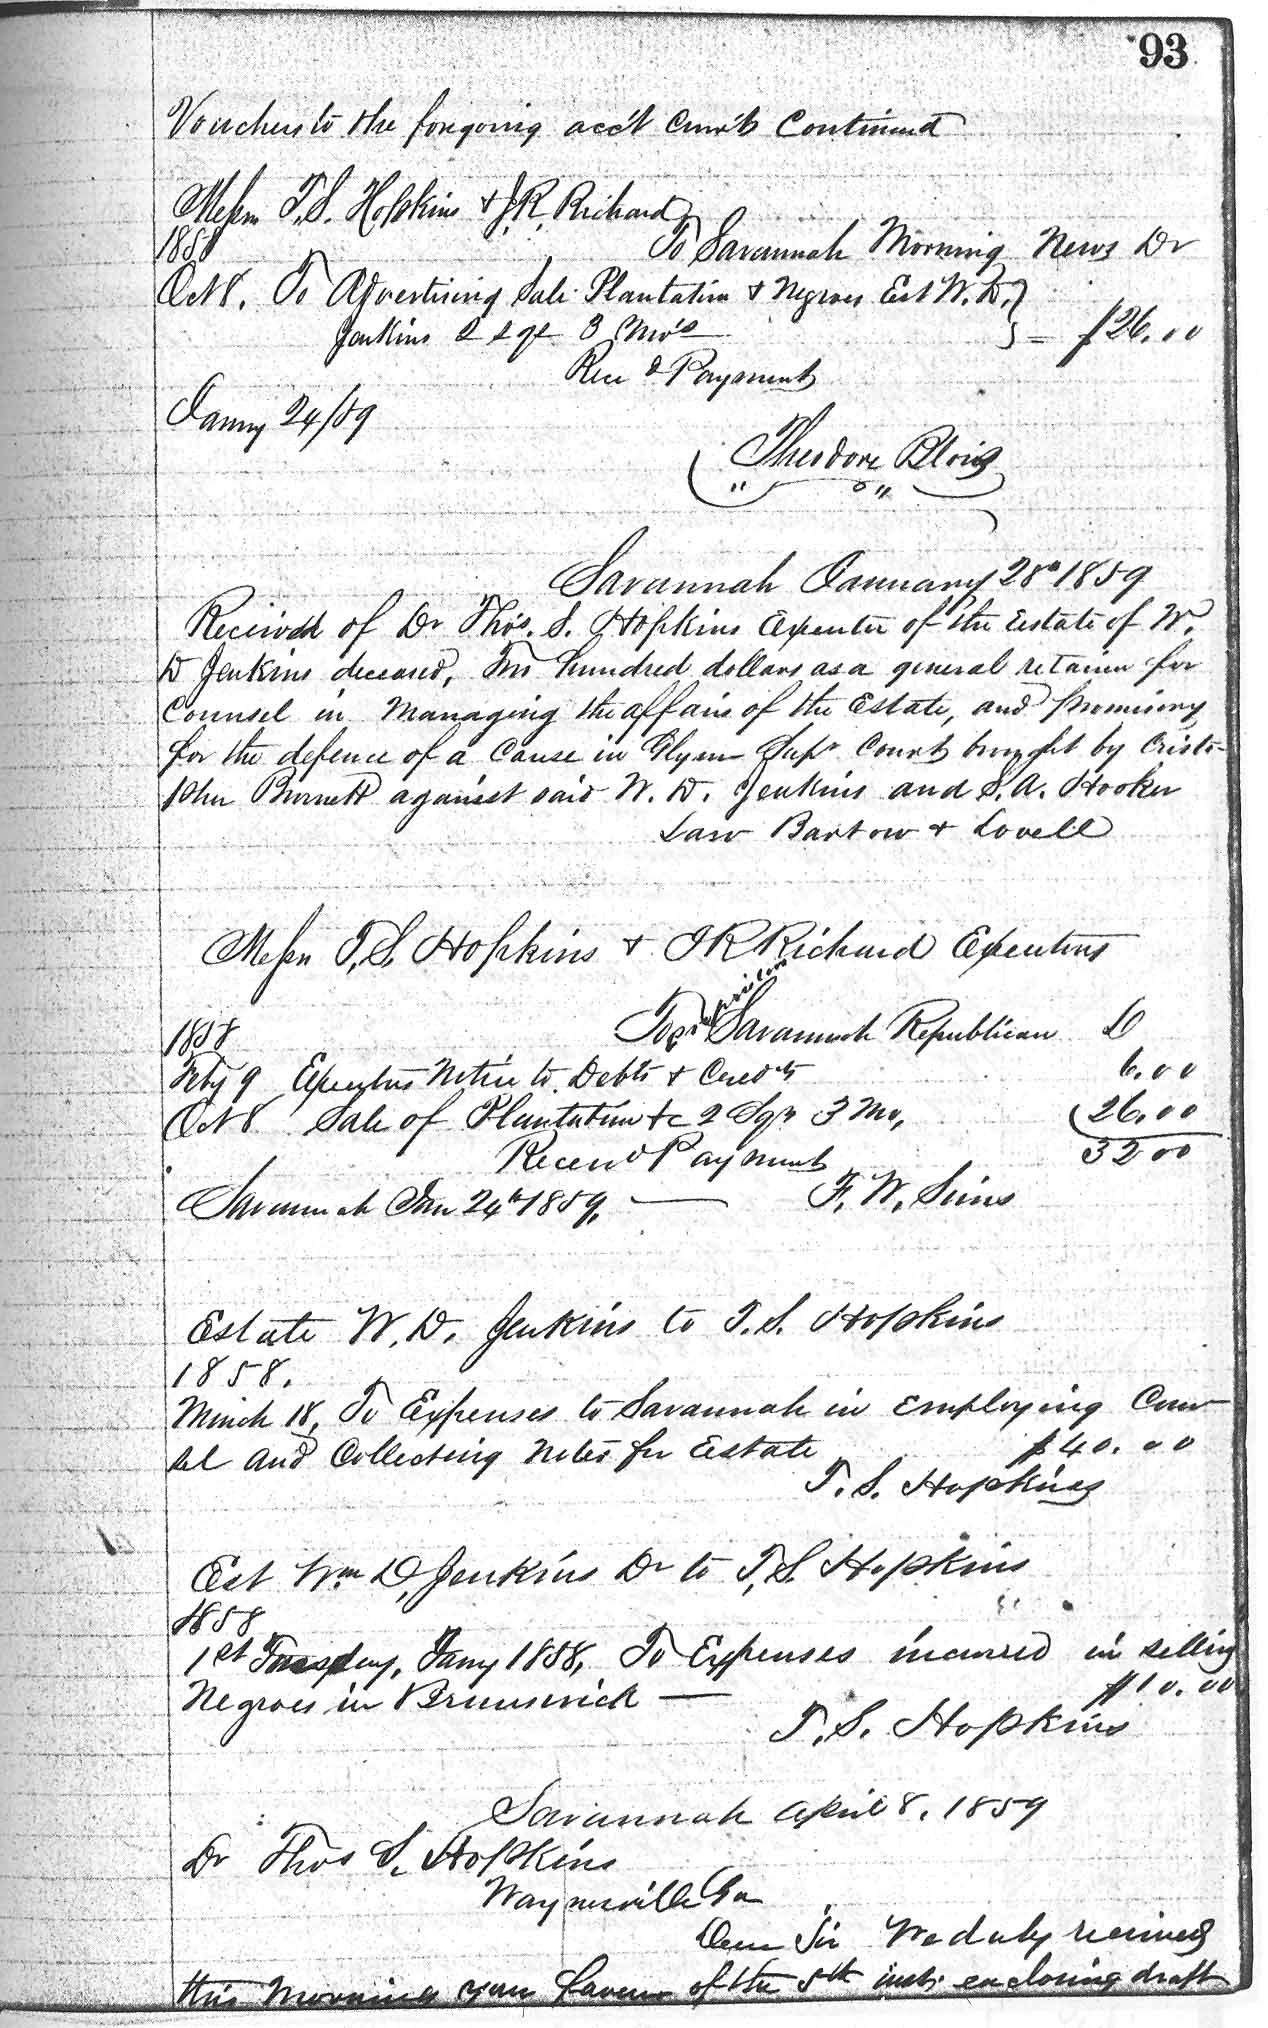 93
Vouchers to the foregoing acc't Curr't Continued
Messrs T. S. Hopkins & J. R. Richard
1858 To Savannah Morning News Dr
Oct 8. To Advertising Sale Plantation & Negroes Est W. D.
Jenkins 2 sqs 3 Mo's = $26.00
Rec d Payment
Jany 24/59
Theodore Blois
Savannah January 28th 1859
Received of Dr Thos. S. Hopkins Executor of the Estate of W.
D Jenkins deceased, Two hundred dollars as a general retainer for
Counsel in Managing the affairs of the Estate, and
for the defence of a Cause in Glynn Supr Court brought by
John Burnett against said W. D. Jenkins and S. A. Hooker
Law Bartow & Lovell
Messrs T. S. Hopkins & J R Richard Executors
To Savannah Republican D
1858
Feby 9 Executors Notice to Debts & Credts 6.00
Oct 8 Sale of Plantation &c 2 Sqr 3 Mo, 26.00
Receivd Payment 32 00
Savannah Jan 24th 1859, F. W. Sims
Estate W. D. Jenkins to T. S. Hopkins
1858.
March 18, To Expenses to Savannah in employing Coun-
sel and Collecting Notes for Estate $40.00
T. S. Hopkins
Est Wm D. Jenkins Dr to T. S. Hopkins
1858
1st Tuesday, Jany 1858, To Expenses incurred in selling
Negroes in Brunswick — $10.00
T. S. Hopkins
Savannah April 8, 1859
Dr Thos S. Hopkins
Waynesville Ga
Dear Sir We duly received
this Morning your favour of the 5th inst. enclosing draft